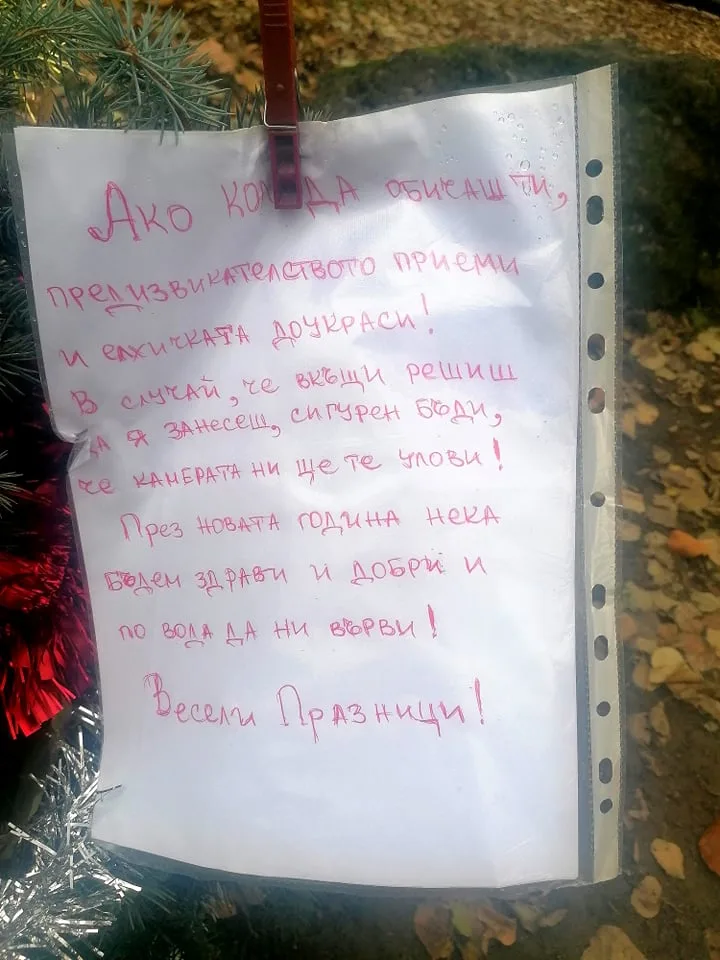 Ако КОЛЕДА ОБИЧАШ ТИ,
ПРЕДИЗВИКАТЕЛСТВОТО ПРИЕМИ
И ЕЛХИЧКАТА ДОУКРАСИ!
В СЛУЧАЙ, ЧЕ ВКЪЩИ РЕШИШ
ДА Я ЗАНЕСЕШ, СИГУРЕН БЪДИ,
ЧЕ КАМЕРАТА НИ ЩЕ ТЕ УЛОВИ!
През НОВАТА ГОДИНА НЕКА
БЪДЕМ ЗДРАВИ И ДОБРИ И
ПО ВОДА ДА НИ ВЪРВИ!
Весели Празници!